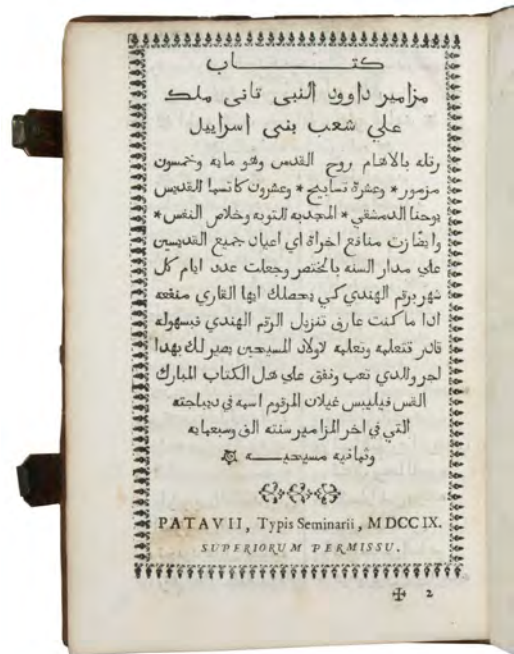 كتاب
مزامير داوود النبى تانى ملك
علي شعب بنى اسراييل
رتله بالالهام روح القدس وهو مايه وخمسون
مزمور * وعشرة تسابيح * وعشرون كاتسما للقديس
يوحنا الدمشقي * المجدبه للتوبه وخلاص النفس *
وايضا زت منافع اخراة اي اعيان جميع القديسين
علي مدار السنه بالمختصر وجعلت عدد ايام كل
شهر برقم الهندي كي يحصلك ايها القاري منفعه
ادا ما كنت عارف تنزيل الرقم الهندي فبسهوله
قادر تتعلمه وتعلمه لاولاد المسيحيين يصير لك بهدا
اجر والدي تعب ونفق علي هدل الكتاب المبارك
القس فيليبس غيلان المرقوم اسمه في ديباجته
التي في اخر المزامير سنته الف وسبعمايه
وثمانيه مسيحيه
PATAVII, Typis Seminarii, MDCCIX.
SUPERIORUM PERMISSU.
2